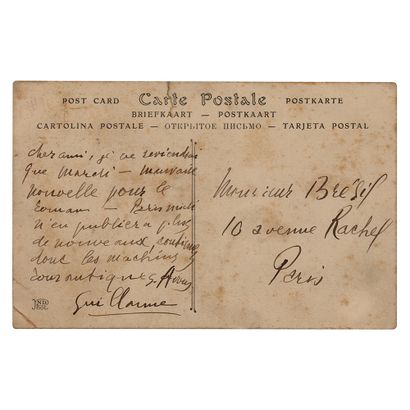 POST CARD Carte Postale POSTKARTE
BRIEFKAART — POSTKAART
CARTOLINA POSTALE — ОТКРЫТОЕ ПИСЬМО — TARJETA POSTAL
cher ami, je ne reviendrai
que mardi — mauvaise
nouvelle pour le
roman — Paris midi
n'en publiera plus
de nouveaux,
donc les machins
Guillaume
ND
Monsieur
10 avenue Rachel
Paris